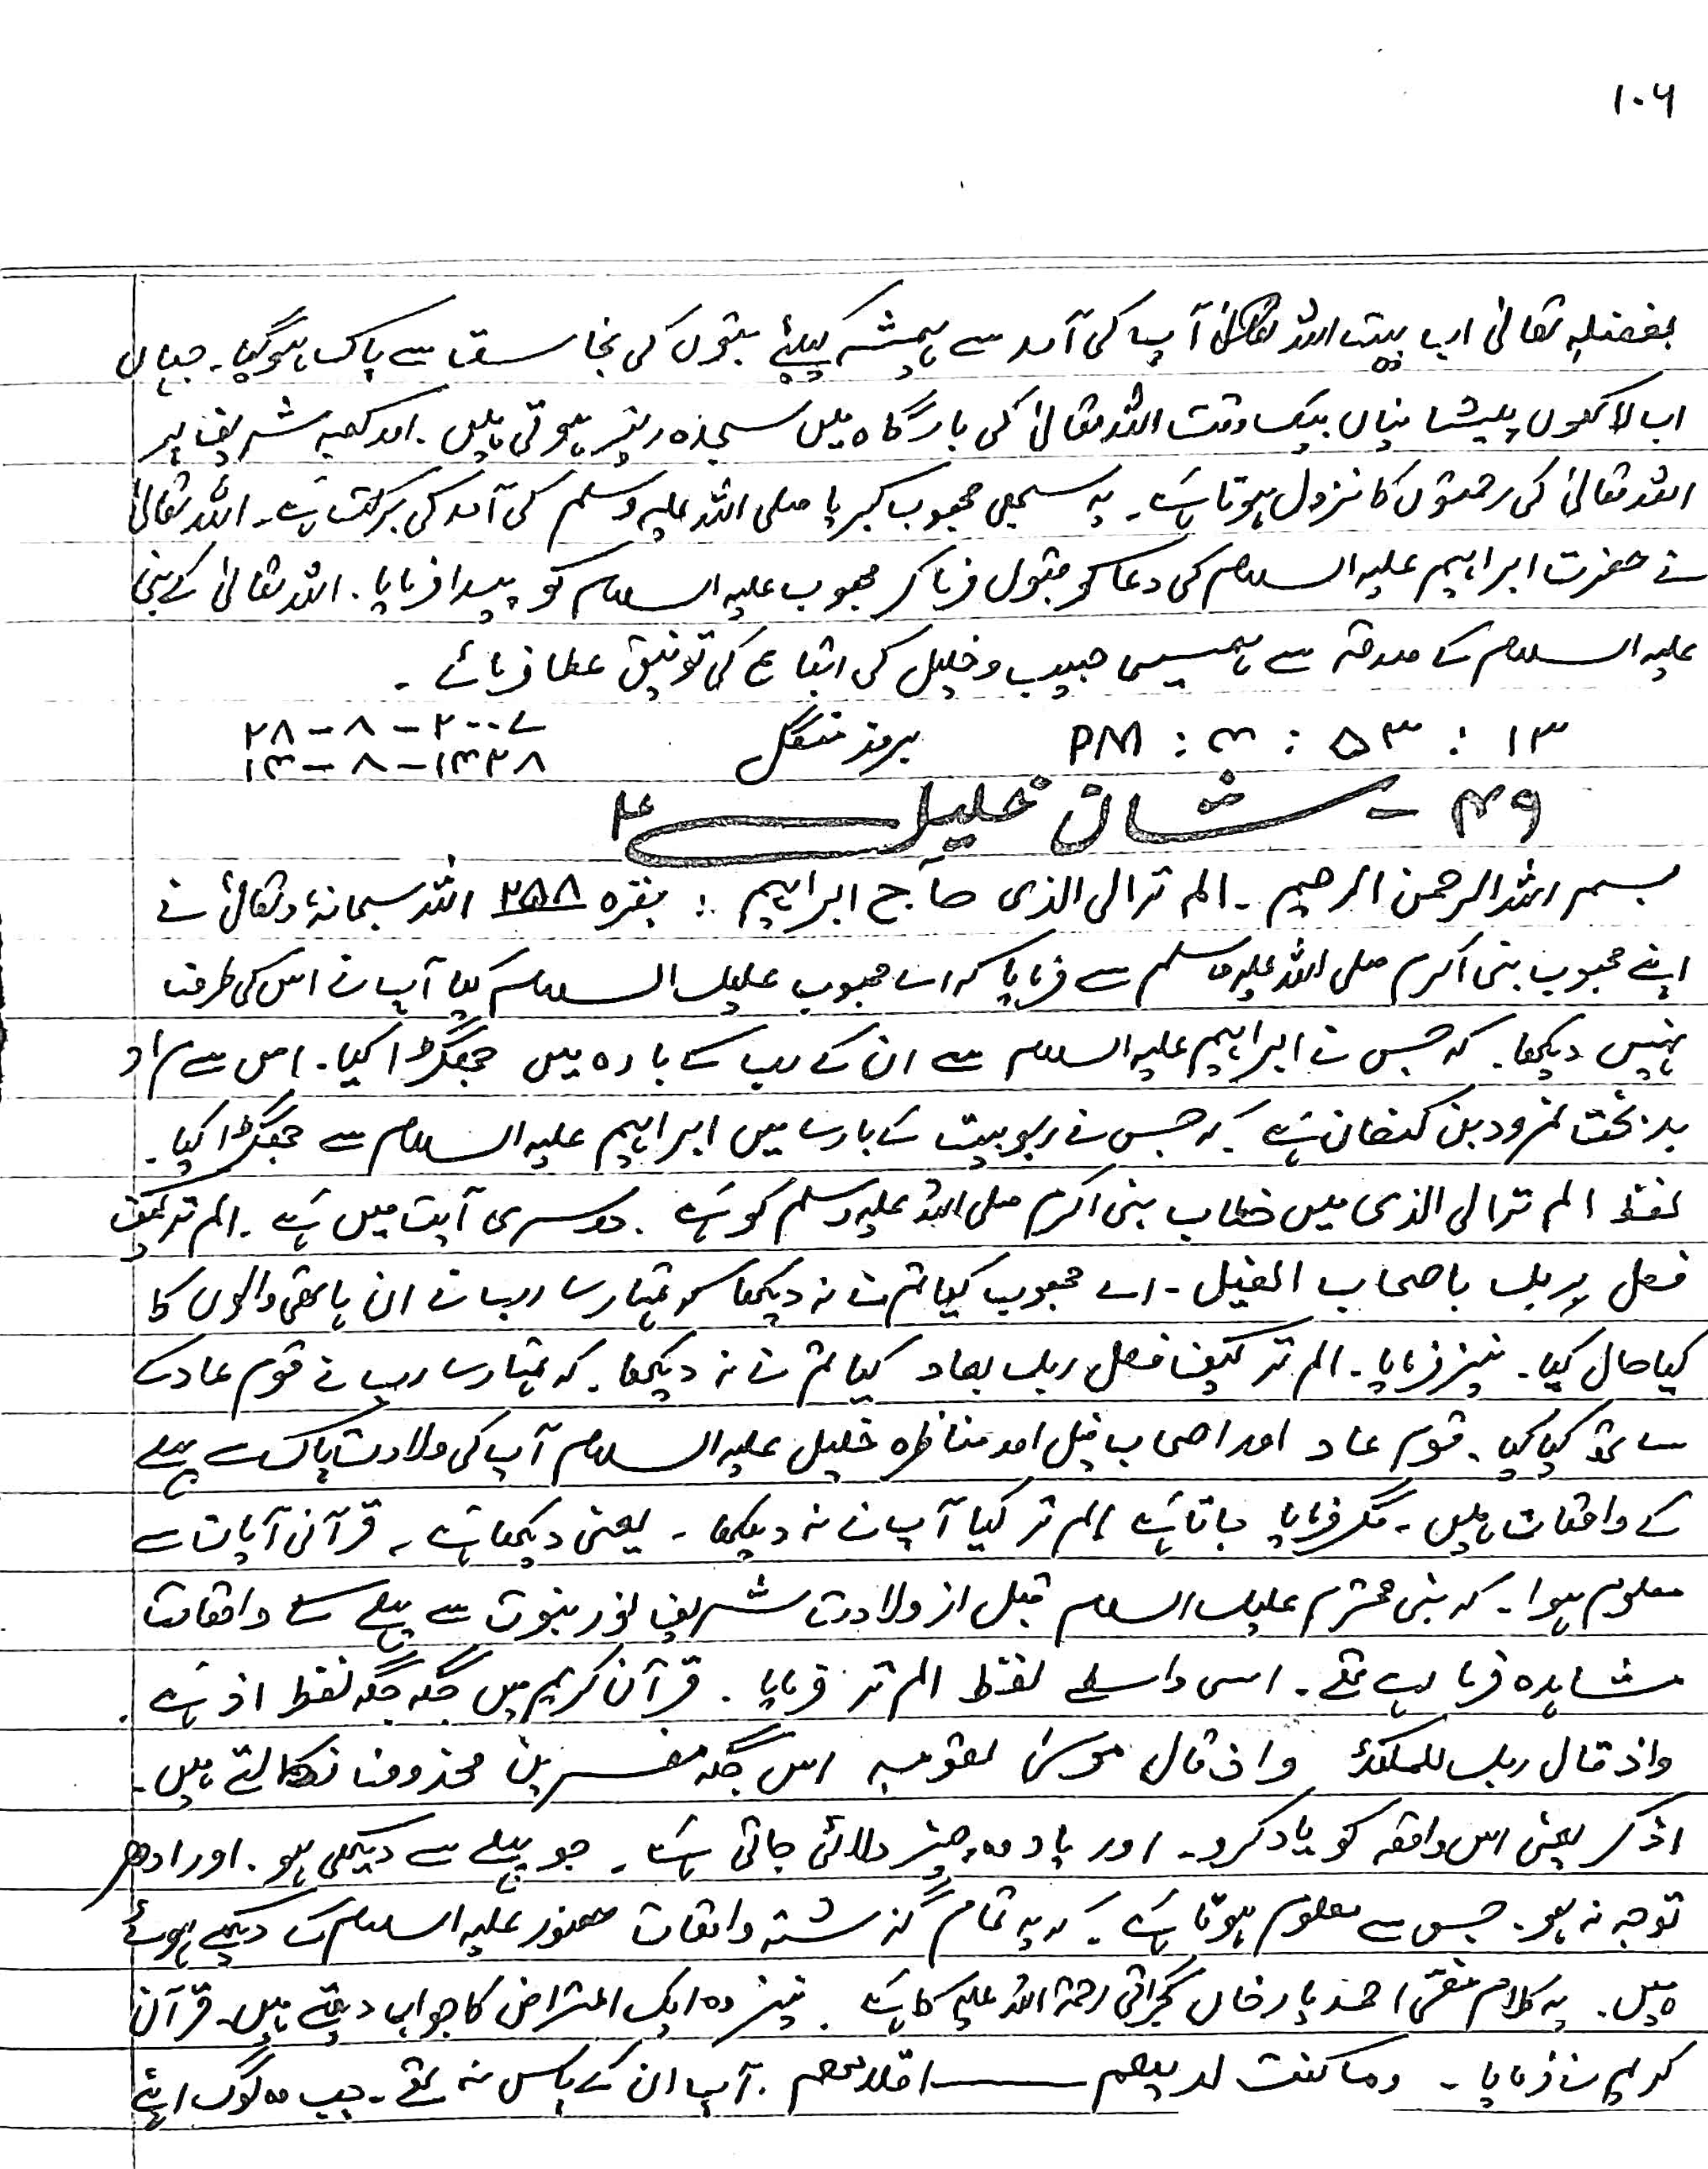 ۱۰۶
بفضلہ تعالیٰ اب بیت اللہ آپ کی آمد سے ہمیشہ کیلئے بتوں کی نجاست سے پاک ہوگیا۔ جہاں
اب لاکھوں پیشانیاں بیک وقت اللہ تعالیٰ کی بارگاہ میں سجدہ ریز ہوتی ہیں۔ اور کعبہ شریف پر
اللہ تعالیٰ کی رحمتوں کا نزول ہوتا ہے۔ یہ سبھی محبوب کبریا صلی اللہ علیہ وسلم کی آمد کی برکت ہے۔ اللہ تعالیٰ
نے حضرت ابراہیم علیہ السلام کی دعا کو قبول فرما کر محبوب علیہ السلام کو پیدا فرمایا۔ اللہ تعالیٰ کے نبی
علیہ السلام کے صدقہ سے ہمیں حبیب و خلیل کی اتباع کی توفیق عطا فرمائے۔
۱۳ : ۵۳ : ۳ : PM بروز منگل ۲۸-۸-۲۰۰۷
۱۳-۸-۱۴۲۸
۴۹ - شان خلیل ۴
بسم اللہ الرحمن الرحیم۔ الم تر الی الذی حآج ابراہیم : بقرہ ۲۵۸ اللہ سبحانہ وتعالیٰ نے
اپنے محبوب نبی اکرم صلی اللہ علیہ وسلم سے فرمایا کہ اے محبوب علیک السلام کیا آپ نے اس کی طرف
نہیں دیکھا۔ کہ جس نے ابراہیم علیہ السلام سے ان کے رب کے بارہ میں جھگڑا کیا۔ اس سے مراد
بدبخت نمرود بن کنعان ہے۔ کہ جس نے ربوبیت کے بارے میں ابراہیم علیہ السلام سے جھگڑا کیا۔
لفظ الم تر الی الذی میں خطاب نبی اکرم صلی اللہ علیہ وسلم کو ہے۔ دوسری آیت میں ہے۔ الم تر کیف
فعل ربک باصحاب الفیل۔ اے محبوب کیا تم نے نہ دیکھا کہ تمہارے رب نے ان ہاتھی والوں کا
کیا حال کیا۔ نیز فرمایا۔ الم تر کیف فعل ربک بعاد کیا تم نے نہ دیکھا۔ کہ تمہارے رب نے قوم عاد کے
ساتھ کیا کیا۔ قوم عاد اور اصحاب فیل اور مناظرہ خلیل علیہ السلام آپ کی ولادت پاک سے پہلے
کے واقعات ہیں۔ مگر فرمایا جاتا ہے الم تر کیا آپ نے نہ دیکھا۔ یعنی دیکھا ہے۔ قرآنی آیات سے
معلوم ہوا۔ کہ نبی محترم علیک السلام قبل از ولادت شریف نور نبوت سے پہلے کے واقعات
مشاہدہ فرما رہے تھے۔ اسی واسطے لفظ الم تر فرمایا۔ قرآن کریم میں جگہ جگہ لفظ اذ ہے۔
واذ قال ربک للملئکۃ واذ قال موسیٰ لقومہ اس جگہ مفسرین محذوف نکالتے ہیں۔
اذکر یعنی اس واقعہ کو یاد کرو۔ اور یاد وہ چیز دلائی جاتی ہے۔ جو پہلے سے دیکھی ہو۔ اور ادھر
توجہ نہ ہو۔ جس سے معلوم ہوتا ہے۔ کہ یہ تمام گذشتہ واقعات حضور علیہ السلام کے دیکھے ہوئے
ہیں۔ یہ کلام مفتی احمد یار خاں گجراتی رحمۃ اللہ علیہ کا ہے۔ نیز وہ ایک اعتراض کا جواب دیتے ہیں۔ قرآن
کریم نے فرمایا۔ وما کنت لدیھم ـــــ اقلامھم۔ آپ ان کے پاس نہ تھے۔ جب وہ لوگ اپنے